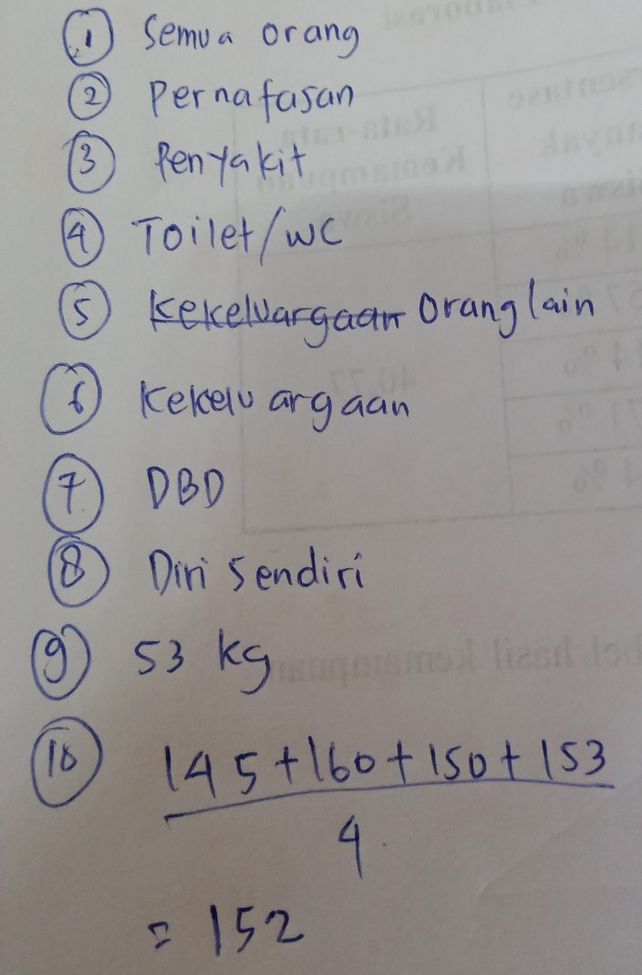 1 Semua orang
2 Pernafasan
3 Penyakit
4 Toilet/WC
5 Kekeluargaan Orang lain
6 Kekeluargaan
7 DBD
8 Diri Sendiri
9 53 kg
10 145+160+150+153
4
= 152